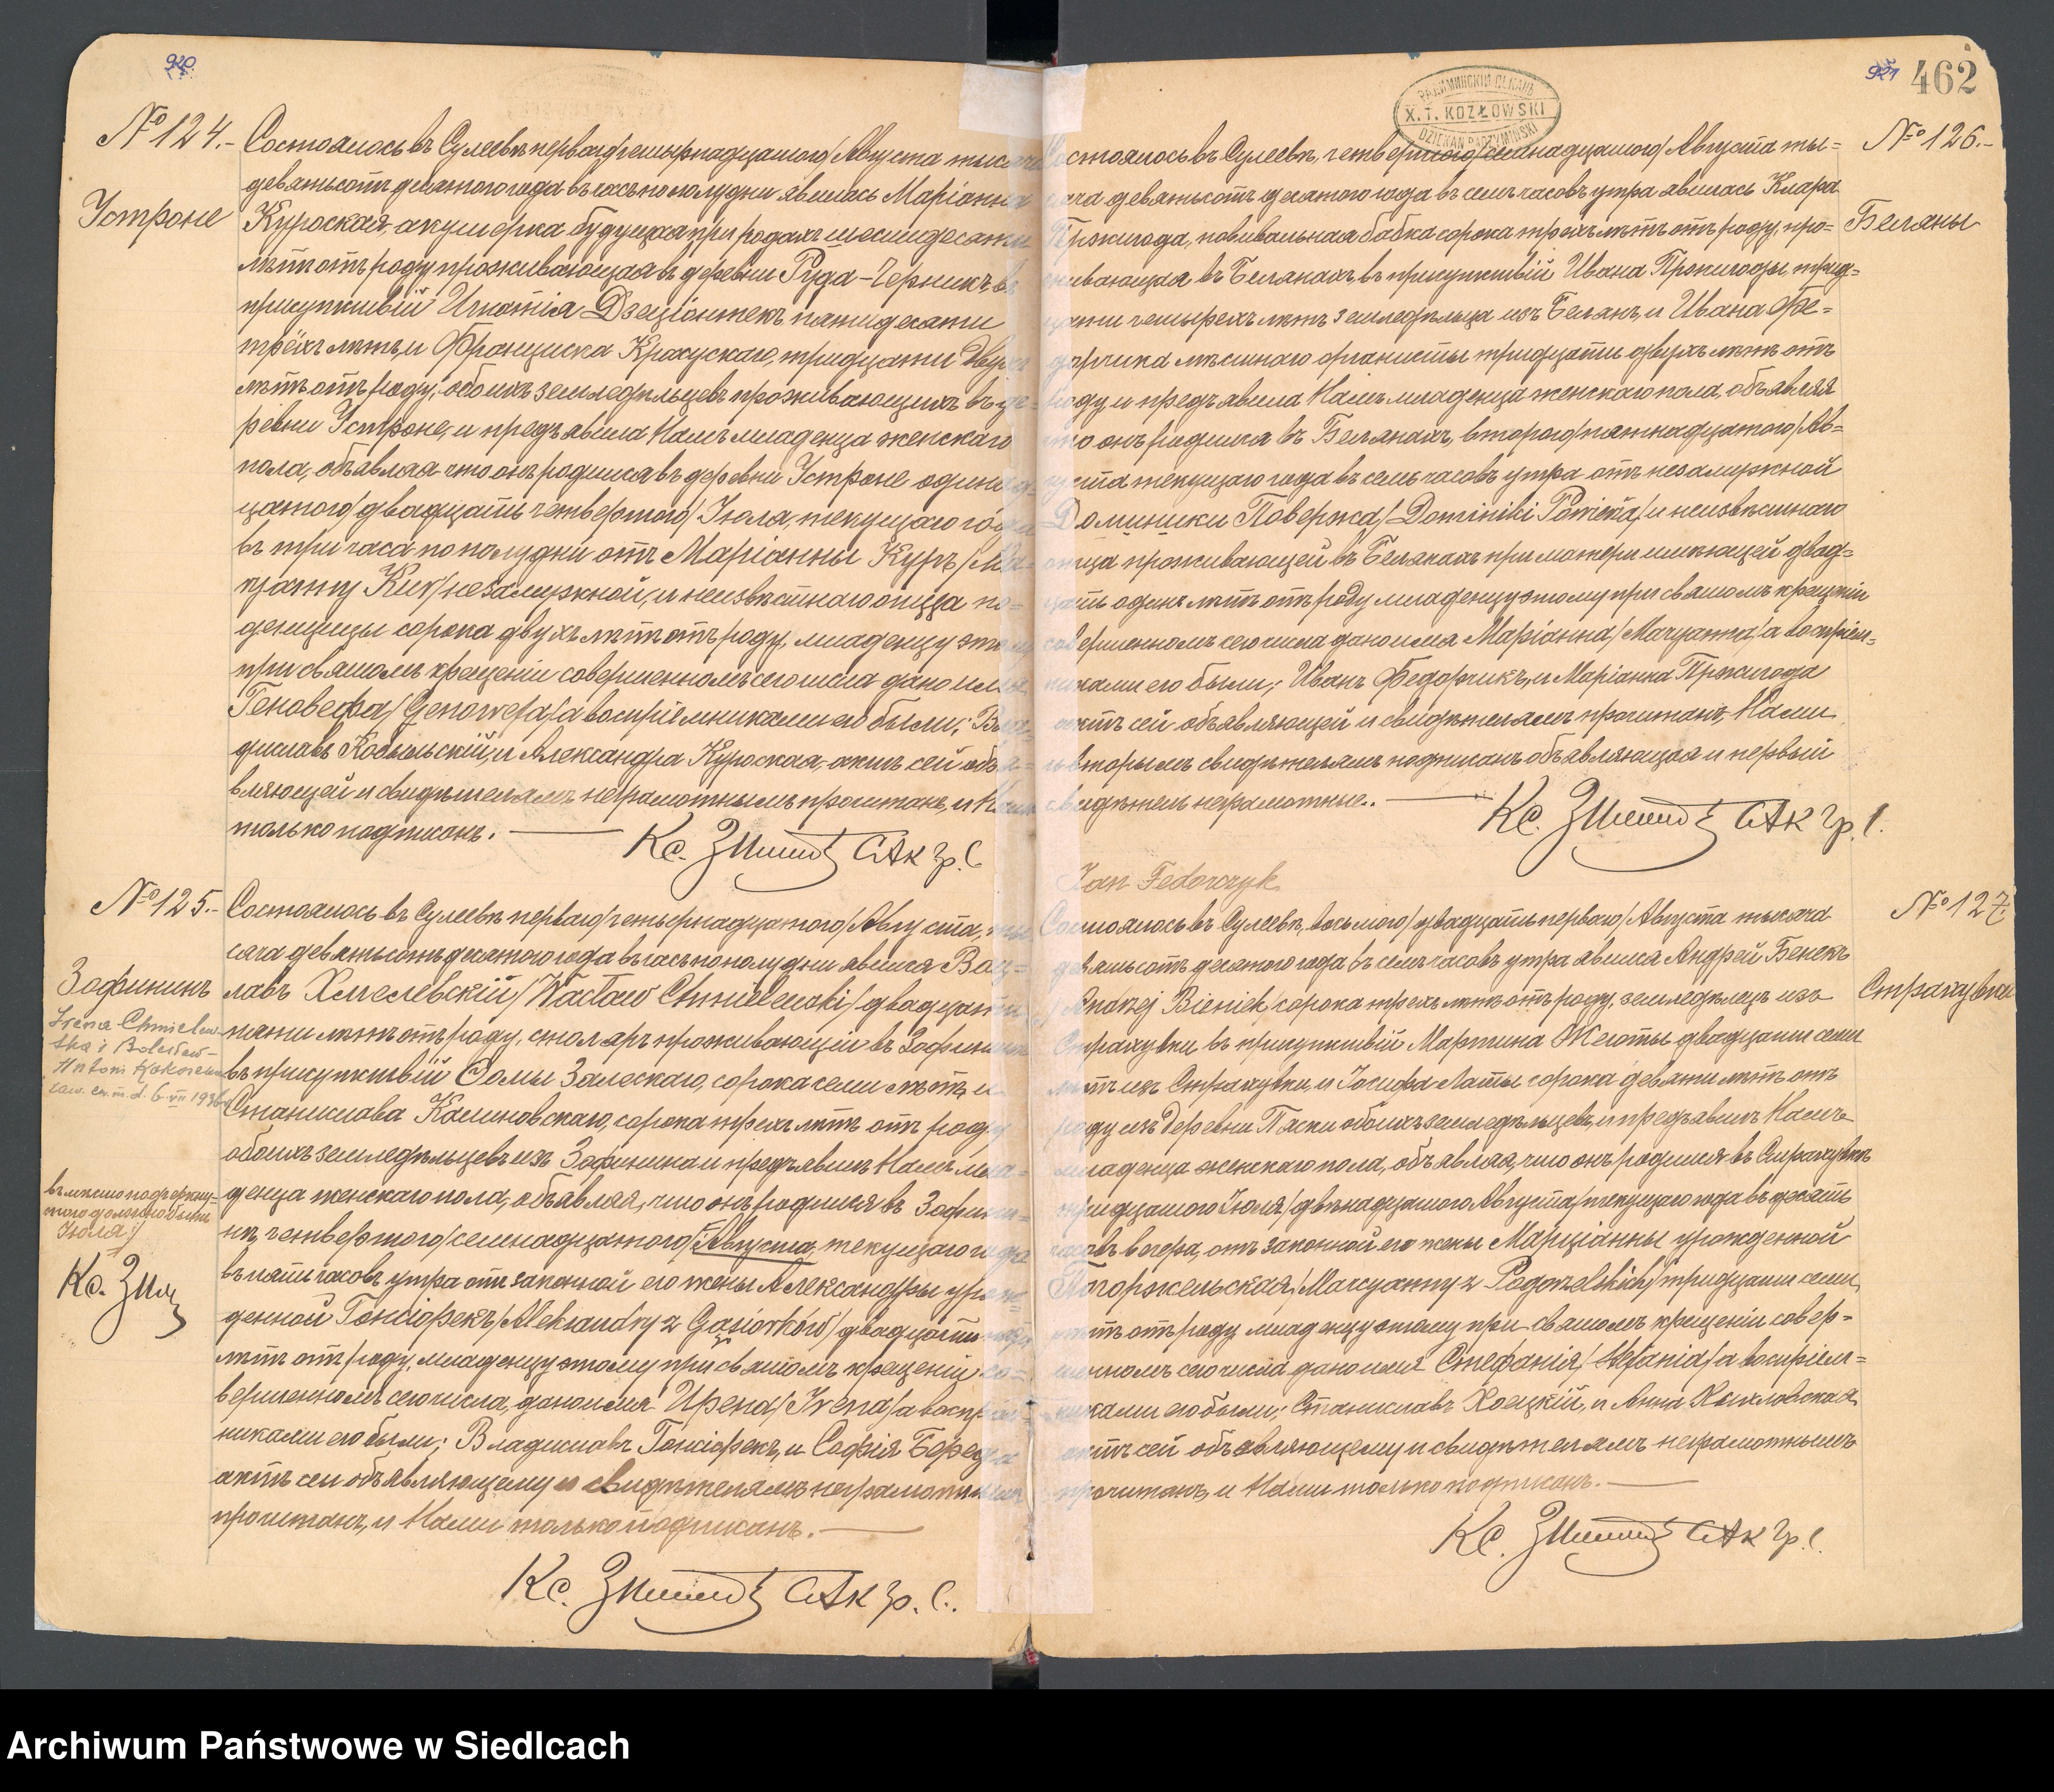 920
№ 124.-
Устроне
Состоялось въ Сулеевѣ перваго/четырнадцатого/ Августа тысяча
девятьсотъ десятого года въ часъ по полудни явилась Маріанна
Куровская акушерка будущая при родахъ шестидесяти
лѣтъ отъ роду, проживающая въ деревни Руда-Черникъ, въ
присутствій Игнатія Дзеціонтекъ пятидесяти
трёхъ лѣтъ, и Франциска Кракускаго, тридцати двухъ
лѣтъ отъ роду, обоихъ земледѣльцевъ проживающихъ въ де=
ревни Устроне, и предъявила Намъ младенца женскаго
пола, объявляя что онъ родился въ деревни Устроне одинад=
цатого/двадцать четвертого/ Іюля, текущаго года
въ три часа по полудни отъ Маріанны Куръ/Ma=
ryanny Kur/ незамужной, и неизвѣстнаго отца по=
денщицы сорока двухъ лѣтъ отъ роду, младенцу этому
при святомъ крещеніи совершенномъ сего числа дано имя
Геновефа/Genowefa/ а воспріемниками его были; Вла=
диславъ Кобыльскій, и Александра Куровская, актъ сей объя=
вляющей и свидѣтелямъ неграмотнымъ прочитанъ, и Нами
только подписанъ.
Кс. САкГр.С
№ 125.-
Зофининъ
Irena Chmielew-
ska i Bolesław-
Antoni
zaw. zw. m. d. 6-VII 1936
въ мѣсто подчеркну-
того должно быть
Іюля/
Кс.
Состоялось въ Сулеевѣ перваго/четырнадцатого/ Августа, ты=
сяча девятьсотъ десятого года въ часъ по полудни явился Вац=
лавъ Хмелевскій/Wacław Chmielewski/ двадцати
пяти лѣтъ отъ роду, столяръ проживающій въ Зофининѣ
въ присутствій Ѳомы Залескаго, сорока семи лѣтъ, и
Станислава Калиновскаго, сорока трехъ лѣтъ отъ роду
обоихъ земледѣльцевъ изъ Зофинина и предъявилъ Намъ мла=
денца женскаго пола, объявляя, что онъ родился въ Зофини=
нѣ, четвертого/семнадцатого/ Августа, текущаго года
въ пять часовъ утра отъ законной его жены Александры урож=
денной Гонсіорекъ/Aleksandry z Gąsiorków/ двадцати
лѣтъ отъ роду, младенцу этому при святомъ крещеніи со=
вершенномъ сего числа, дано имя Ирена/Irena/ а воспріем=
никами его были; Владиславъ Гонсіорекъ, и Софія Береда
актъ сей объявляющему и свидѣтелямъ неграмотнымъ
прочитанъ, и Нами только подписанъ.
Кс. САкГр.С.
921 462
РАДИМИНСКІЙ ДЕКАНЪ
X. T. KOZŁOWSKI
DZIEKAN RADZYMIŃSKI
№ 126.-
Беляны
Состоялось въ Сулеевѣ, четвертого/семнадцатого/ Августа ты=
сяча девятьсотъ десятого года въ семь часовъ утра явилась Клара
Пржигода, повивальная бабка сорока трехъ лѣтъ отъ роду, про=
живающая въ Белянахъ, въ присутствій Ивана Пржигоды трид=
цати четырехъ лѣтъ земледѣльца изъ Белянъ, и Ивана Фе=
дорчика мѣстнаго органисты тридцати двухъ лѣтъ отъ
роду и предъявила Намъ младенца женскаго пола, объявляя
что онъ родился въ Белянахъ, второго/пятнадцатого/ Ав=
густа текущаго года въ семь часовъ утра отъ незамужной
Доминики Повержа/Dominiki Powierża/ и неизвѣстнаго
отца проживающей въ Белянахъ при матери имѣющей двад=
цать одинъ лѣтъ отъ роду младенцу этому при святомъ крещеніи
совершенномъ сего числа дано имя Маріанна/Maryanna/ а воспріем=
никами его были; Иванъ Федорчикъ, и Маріанна Пржигода
актъ сей объявляющей и свидѣтелямъ прочитанъ, Нами
и вторымъ свидѣтелямъ подписанъ объявляющая и первый
свидѣтель неграмотные..
Кс. САкГр.С.
Jan Fedorczyk
№ 127
Страхувка
Состоялось въ Сулеевѣ, восьмого/двадцать перваго/ Августа тысяча
девятьсотъ десятого года въ семь часовъ утра явился Андрей Бенекъ
/Andrzej Bieniek/ сорока трехъ лѣтъ отъ роду, земледѣлецъ изъ
Страхувки въ присутствій Мартина Жеготы двадцати семи
лѣтъ изъ Страхувки, и Іосифа Латы сорока девяти лѣтъ отъ
роду изъ деревни Пяски обоихъ земледѣльцевъ, и предъявилъ Намъ
младенца женскаго пола, объявляя, что онъ родился въ Страхувкѣ
тридцатого Іюля/двѣнадцатого Августа/ текущаго года въ десять
часовъ вечера, отъ законной его жены Марціанны урожденной
Погоржельская/Marcyanny z Pogorzelskich/ тридцати семи
лѣтъ отъ роду младенцу этому при святомъ крещеніи совер=
шенномъ сего числа дано имя Стефанія/Stefania/ а воспріем=
никами его были; Станиславъ Хоецкій, и Анна
актъ сей объявляющему и свидѣтелямъ неграмотнымъ
прочитанъ, и Нами только подписанъ.
Кс. САкГр.С.
Archiwum Państwowe w Siedlcach